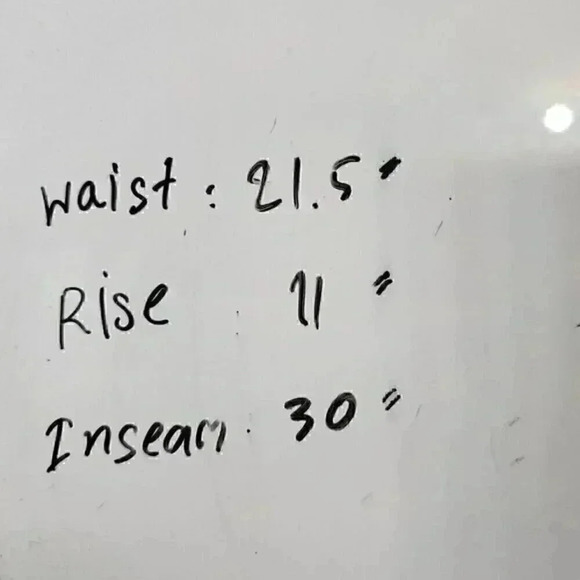 Waist : 21.5"
Rise : 11 "
Inseam . 30 "